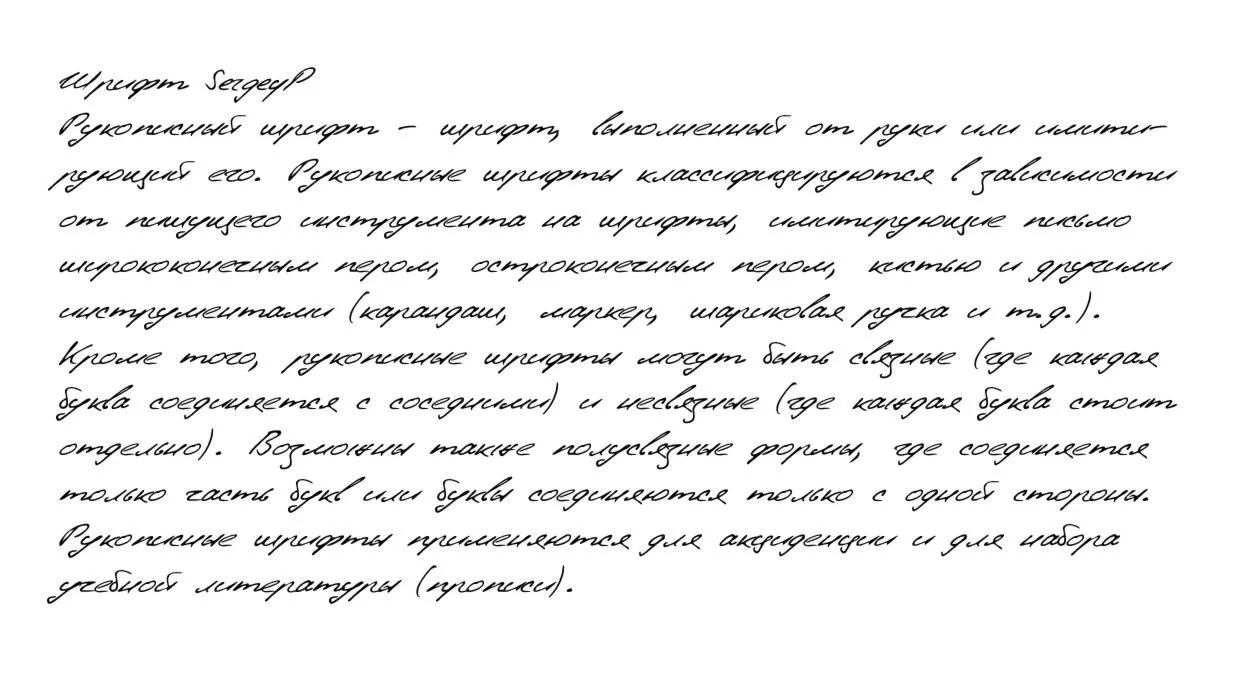 Шрифт SergeyP
Рукописный шрифт – шрифт, выполненный от руки или имити-
рующий его. Рукописные шрифты классифицируются в зависимости
от пишущего инструмента на шрифты, имитирующие письмо
ширококонечным пером, остроконечным пером, кистью и другими
инструментами (карандаш, маркер, шариковая ручка и т.д.).
Кроме того, рукописные шрифты могут быть связные (где каждая
буква соединяется с соседними) и несвязные (где каждая буква стоит
отдельно). Возможны также полусвязные формы, где соединяется
только часть букв или буквы соединяются только с одной стороны.
Рукописные шрифты применяются для акциденции и для набора
учебной литературы (прописи).